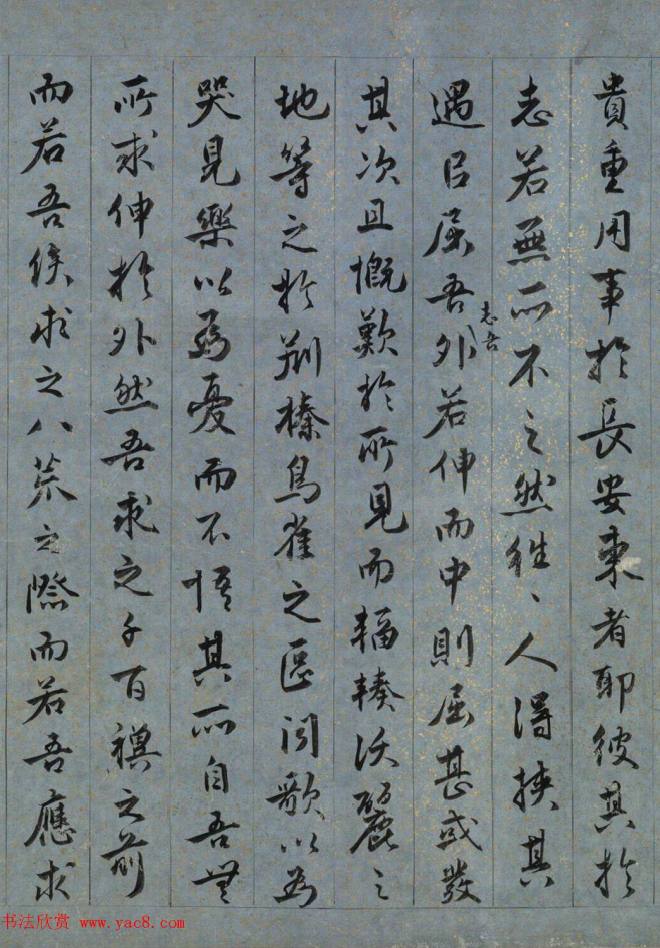 貴重用事於長安東者耶彼其於
志若無所不之然往〻人得挾其
遇曰屈吾外若伸而中則屈甚或發
志吾
其次且慨歎於所見而輻輳沃麗之
地等之於荆榛鳥雀之區聞歌以為
哭見樂以為憂而不悟其所自吾無
所求伸於外然吾求之千百禩之前
而若吾俟求之八荒之際而若吾應求
书法欣赏 www.yac8.com